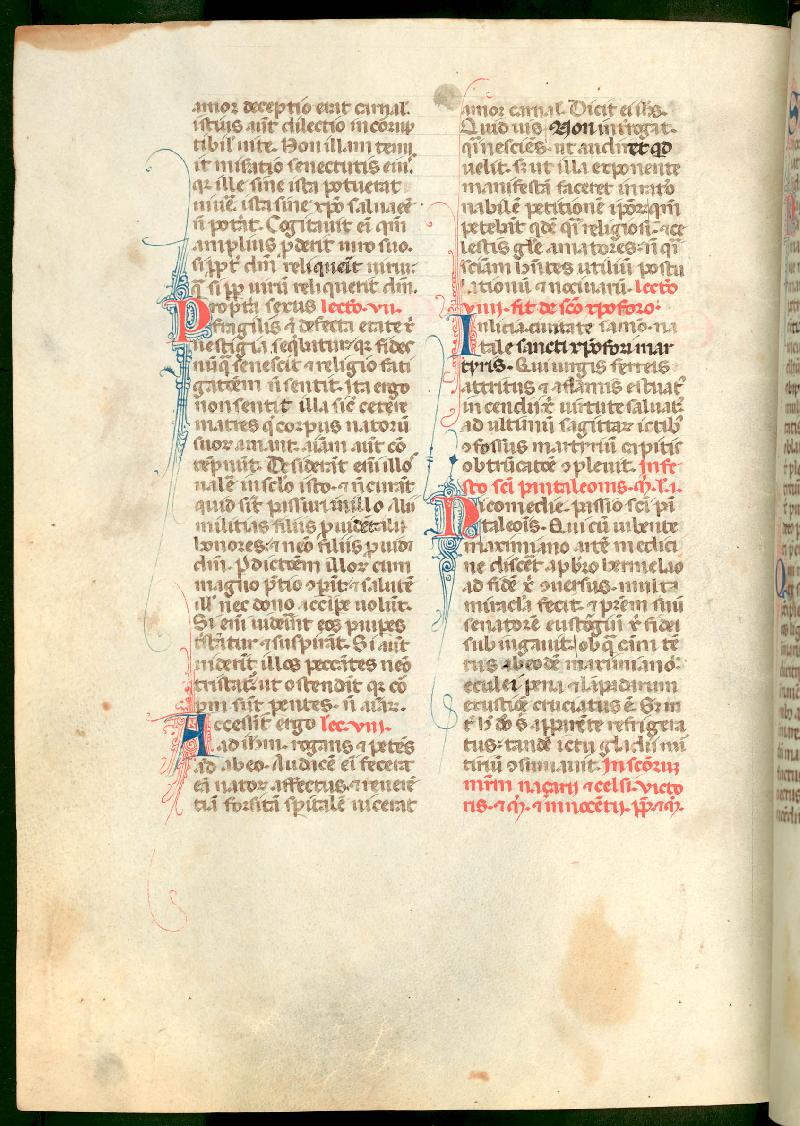 amor deceptio erat carnal.
istius aut dilectio incorrup
tibil uite. Non illam tenu
it miratio senectutis eius
qr ille sine ista potuerat
uiuere. ista sine xpo saluare
n potat. Cogitauit ei qm
amplius pderit uiro suo.
si ppt dm reliquerit uirum.
q si pp uirum reliquerit dm.
Propta sexus lecto. vii.
fragilis & defecta etate
uestigia sequitur qr fides
nuq senescit & religio fati
gatoem n sentit. Ita ergo
non sentit illa sic cetere
matres q corpus natoru
suor amant. aiam aut co
tepnut. Desiderat eni illo
ualere in sclo isto. & n curant
quid sit passuri in illo Alii
militias filiis puident alii
honores. & nemo filiis puidt
dm. Pdictoem illor cum
magno ptio opat. & salute
ill nec dono accipe uolut.
Si eni uiderit eos paupes
tstatur & suspirat. Si aut
uiderit illos peccates nemo
tristatr. ut ostendat qr co
pm sunt petes. n aiar.
Accessit ergo lec. viii.
ad ihm. rogans & petes
ad ab eo. Audace ei fecerat
ea nator affectus. & reuere
tia forsita spitale uicerat
amor carnal. Dicit ei ihs.
Quid uis Non interrogat.
qi nesciens. ut audiret qd
uelit. s ut illa exponente
manifesta faceret irrato
nabile petitione ipor. qm
petebat qde qi religiosi. & ce
lestis gle amatores. n qi
sciam hntes utiliu postu
lationu & nociuaru. lecto
viiii. fit de sco xpoforo.
In licia ciuitate samo. na
tale sancti xpofori mar
tyris. Qui uirgis ferreis
attritus & a flamis estuat
incendii xi uirtute saluat.
ad ultimu sagittar ictib
ofossus martyriu capitis
obtrucatoe opleuit. In fe
sto sci pantaleonis. m. l. i.
Nicomedie. passio sci pa
taleois. Qui cu iubente
maximiano arte medici
ne disceret a pbro hermelao
ad fide xi couersus. multa
miracla fecit. & prem suu
senatore eustogiu xi fidei
subiugauit ob qm cam te
tus ab eode maximiano.
eculei pena & lapadarum
exustioe cruciatus e. S in
t h do s apparente refrigera
tus. tande ictu gladii mar
tiriu osumauit. In scorum
mrm naçarii & celsi. victo
ris. & m. & innocetii. pp. & m.